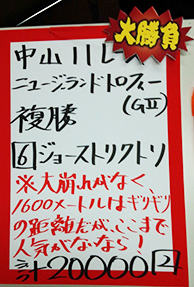 大勝負
中山11L
ニュージランドトロフィー
(GⅡ)
複勝
6 ジョーストリクトリ
※大崩れがなく、
1600メートルはギリギリ
の距離だが、ここまで
人気がないなら！
計20000円